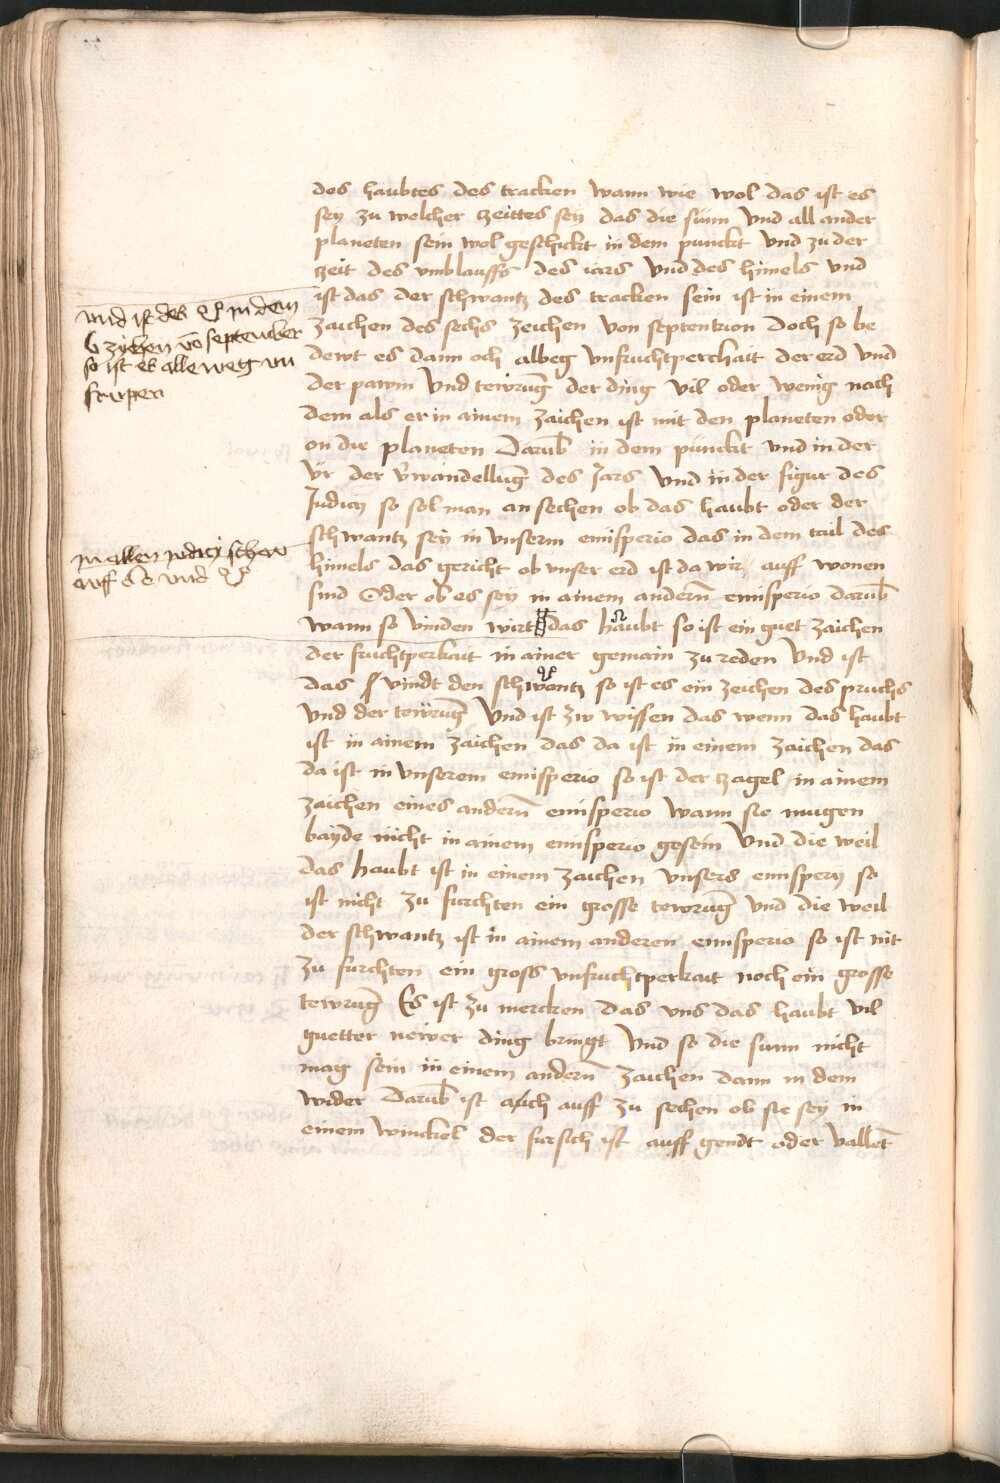 des haubtes des tracken wann wie wol das ist es
sey zu welcher zeittes sey das die sunn vnd all ander
planeten sein wol geschickt in dem punckt vnd zu der
zeit des vmblauffs des iars vnd des himels vnd
ist das der schwantz des tracken sein ist in einem
zaichen des sechs zeichen von septentrion doch so be
dewt es dann och albeg vnfruchtperchait der erd vnd
der pawm vnd tewrung der ding vil oder wenig nach
dem als er in ainem zaichen ist mit den planeten oder
on die planeten Darub in dem punckt vnd in der
vr der vwandellung des Jars vnd in der figur des
Judicy so sol man an sechen ob das haubt oder der
schwantz sey in vnserm emisperio das in dem tail des
himels das gericht ob vnser erd ist da wir auff wonen
sind Oder ob es sey in ainem andern emisperio darub
wann so vinden wirt das haubt ☊ so ist ein guet zaichen
der fruchtperkait in ainer gemain zu reden vnd ist
das vindt den schwantz ☋ so ist es ein zeichen des pruchs
vnd der tewrung vnd ist zw wissen das wenn das haubt
ist in ainem zaichen das da ist in einem zaichen das
da ist in vnserem emisperio so ist der zagel in ainem
zaichen eines andern emisperio wann sie mugen
bayde nicht in ainem emisperio gesein vnd die weil
das haubt ist in einem zaichen vnsers emispery so
ist nicht zu furchten ein grosse tewrung vnd die weil
der schwantz ist in ainem anderen emisperio so ist nit
zu furchten ein gross vnfruchtperkait noch ein grosse
tewrung Es ist zu mercken das vns das haubt vil
guetter newer ding bringt vnd so die sunn nicht
mag sein in einem andern zaichen dann in dem
wider Darub ist auch auff zu sechen ob sie sey in
einem winckel der fursich ist auff gendt oder vallet
vnd ist des ☋ in dem
6 zychen vo september
so ist es alleweg vn
in allen judicy schaw
auff vnd